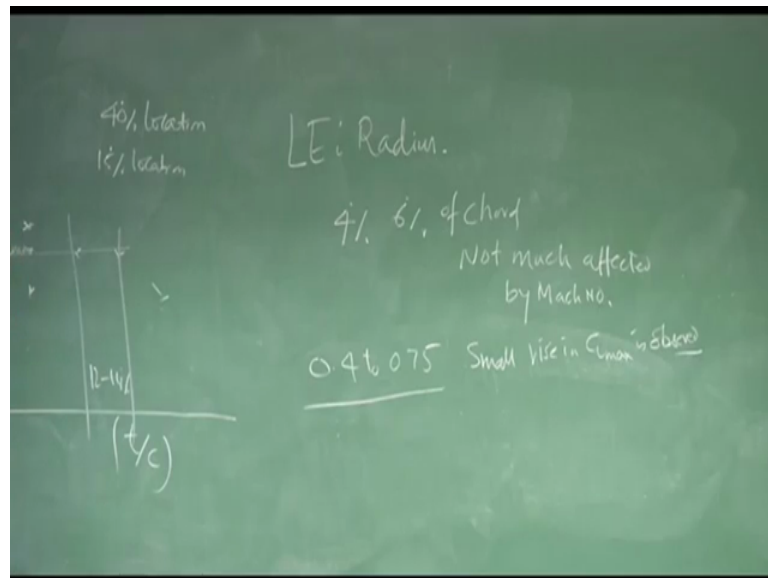 40% location
15% location
LE: Radius.
4%. 6%. of Chord
Not much affected
by Mach No.
0.4 to 075 Small rise in CLmax is observed
12-14%
(t/c)